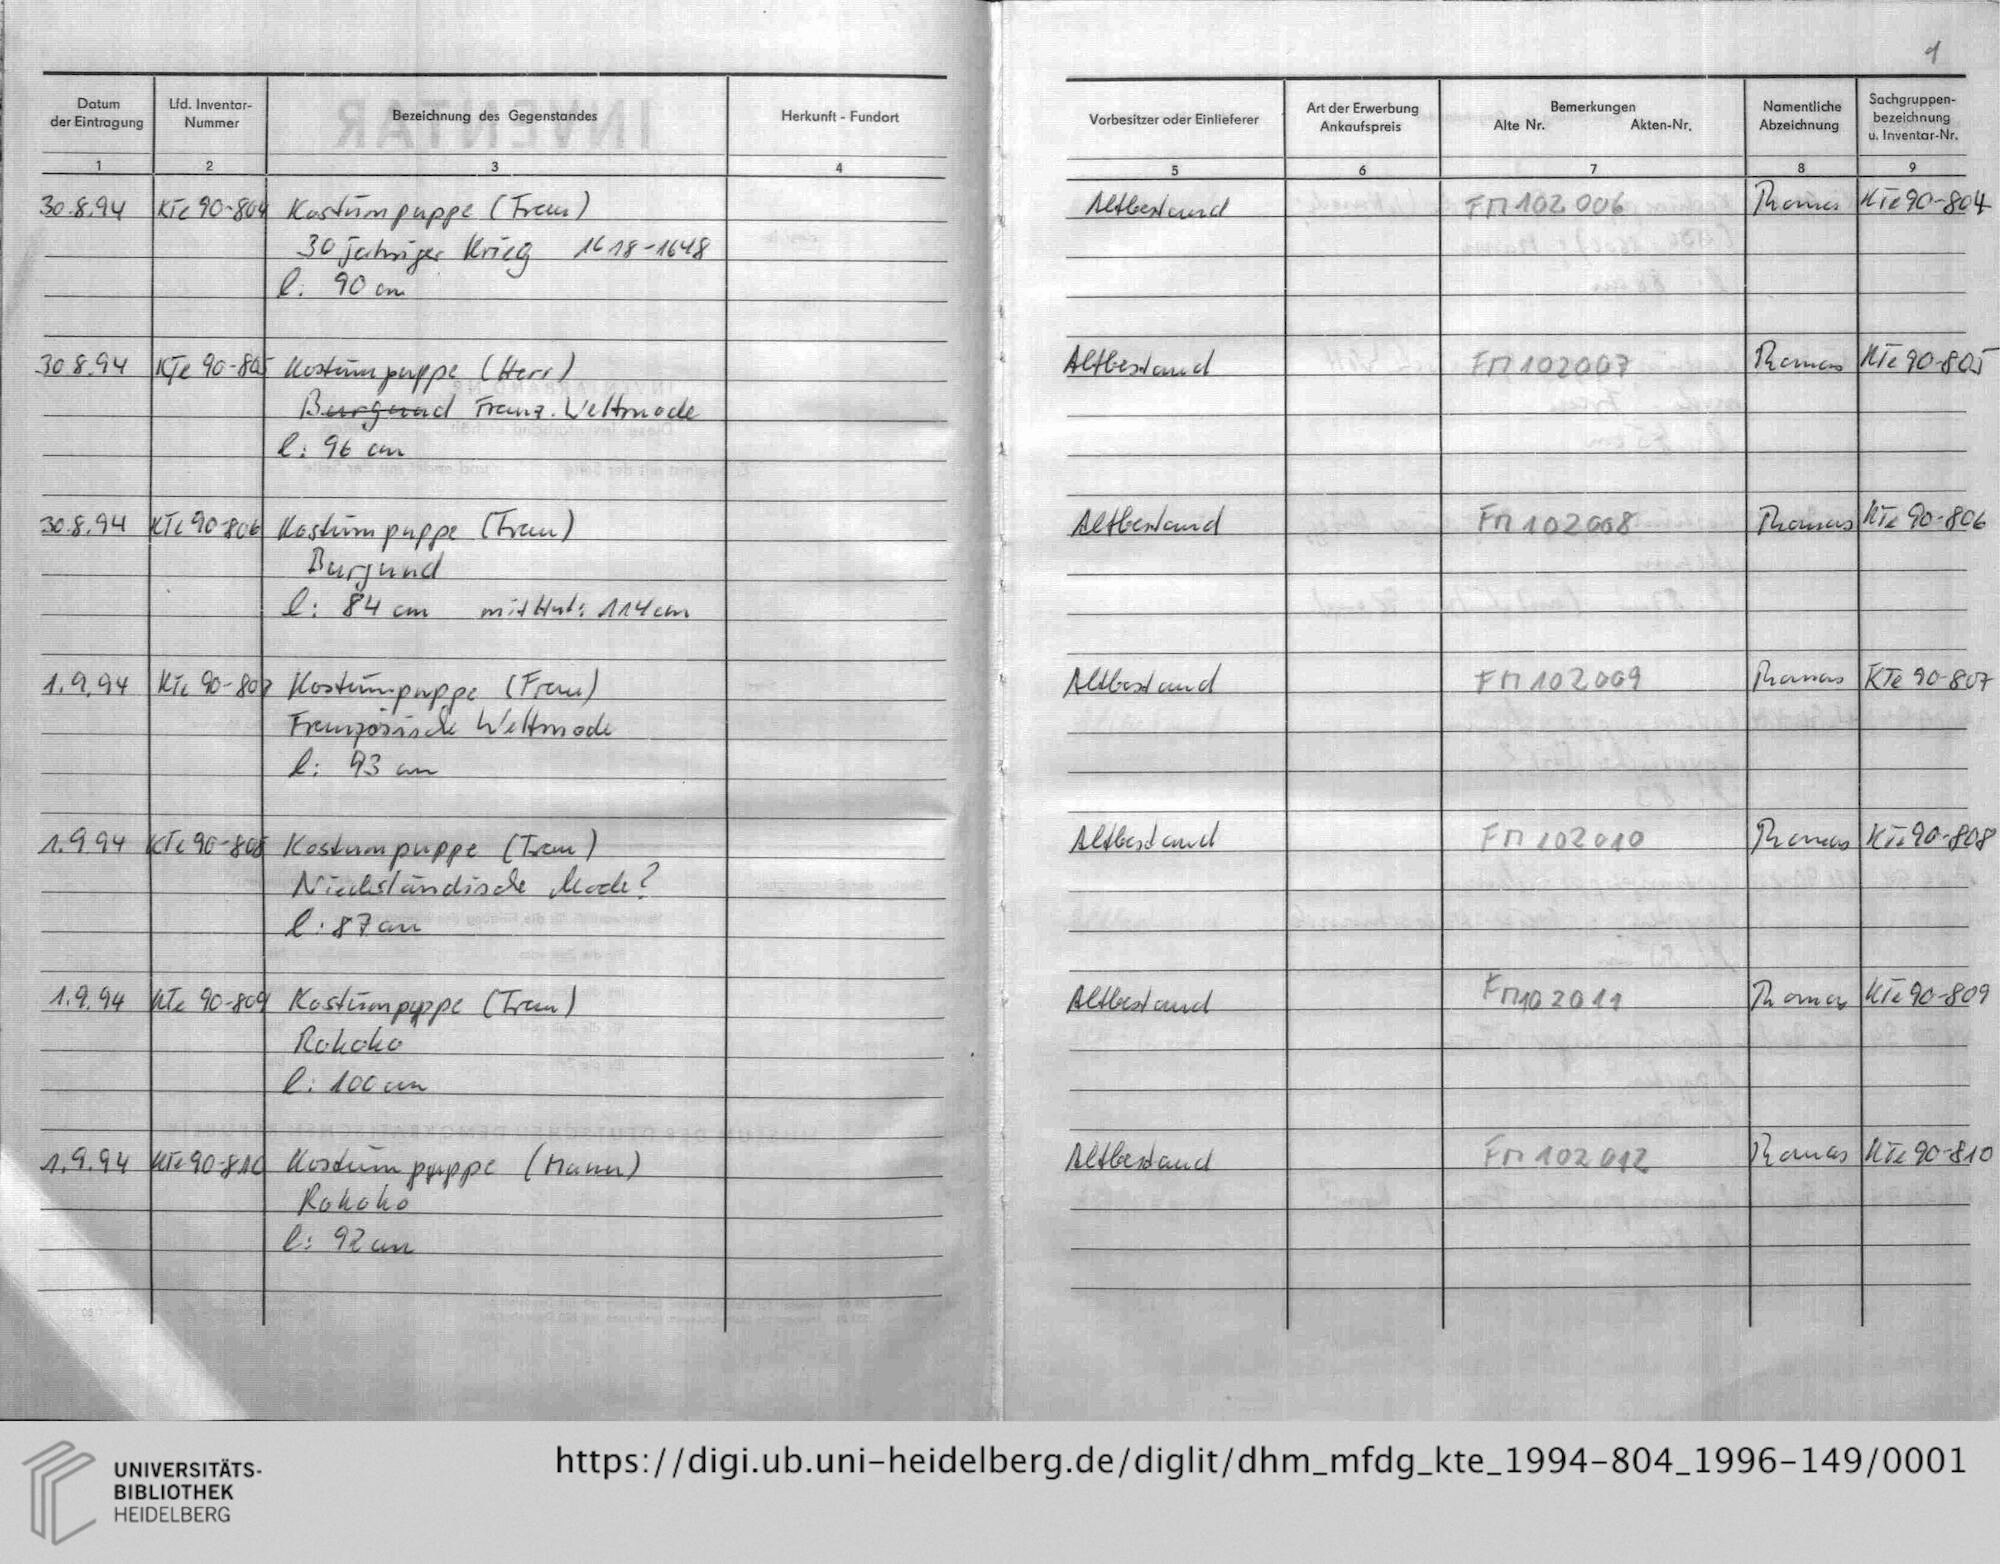 1
Datum der Eintragung | Lfd. Inventar-Nummer | Bezeichnung des Gegenstandes | Herkunft - Fundort | Vorbesitzer oder Einlieferer | Art der Erwerbung Ankaufspreis | Bemerkungen Alte Nr. Akten-Nr. | Namentliche Abzeichnung | Sachgruppen-bezeichnung u. Inventar-Nr.
1 2 3 4 5 6 7 8 9
30.8.94 KTe 90-804 Kostümpuppe (Frau) Altbestand FM 102 006 Thomas KTe 90-804
30 jähriger Krieg 1618-1648
l: 90 cm
30.8.94 KTe 90-805 Kostümpuppe (Herr) Altbestand FM 102007 Thomas KTe 90-805
Burgund Franz. Weltmode
l: 96 cm
30.8.94 KTe 90-806 Kostümpuppe (Frau) Altbestand FM 102008 Thomas KTe 90-806
Burgund
l: 84 cm mit Hut: 114 cm
1.9.94 KTe 90-807 Kostümpuppe (Frau) Altbestand FM 102009 Thomas KTe 90-807
Französische Weltmode
l: 93 cm
1.9.94 KTe 90-808 Kostumpuppe (Frau) Altbestand FM 102010 Thomas KTe 90-808
Niederländische Mode?
l: 87 cm
1.9.94 KTe 90-809 Kostümpuppe (Frau) Altbestand FM 102011 Thomas KTe 90-809
Rokoko
l: 100 cm
1.9.94 KTe 90-810 Kostümpuppe (Mann) Altbestand FM 102012 Thomas KTe 90-810
Rokoko
l: 92 cm
UNIVERSITÄTS-
BIBLIOTHEK
HEIDELBERG
https://digi.ub.uni-heidelberg.de/diglit/dhm_mfdg_kte_1994-804_1996-149/0001